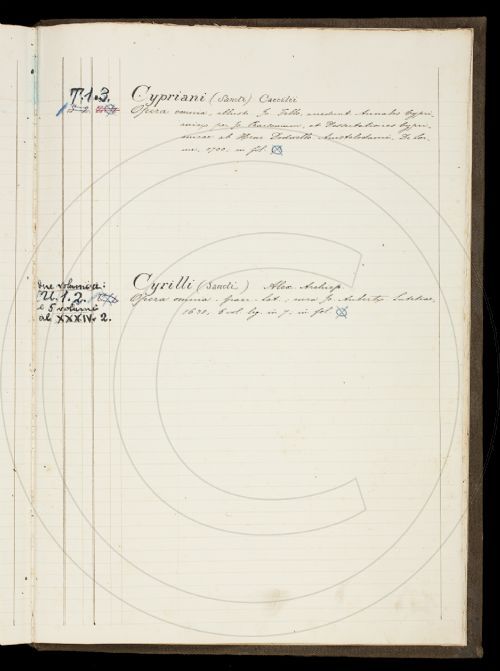 T.1.3.
Cypriani (Sancti) Caecilii
Opera omnia, illust. Jo. Fello, accedunt Annales Cypri-
anici per Jo. Pearsonium, et Dissertationes Cypri-
anicae ab Henr. Dodwello Amstelodami, De Lor-
me, 1700, in fol.
due volumi a:
U.1.2.
e 5 volumi
al XXXIV. 2.
Cyrilli (Sancti) Alex. Archiep.
Opera omnia. Graec. Lat., cura Jo. Auberti, Lutetiae,
1638, 6 vol. lig. in 7. in fol.